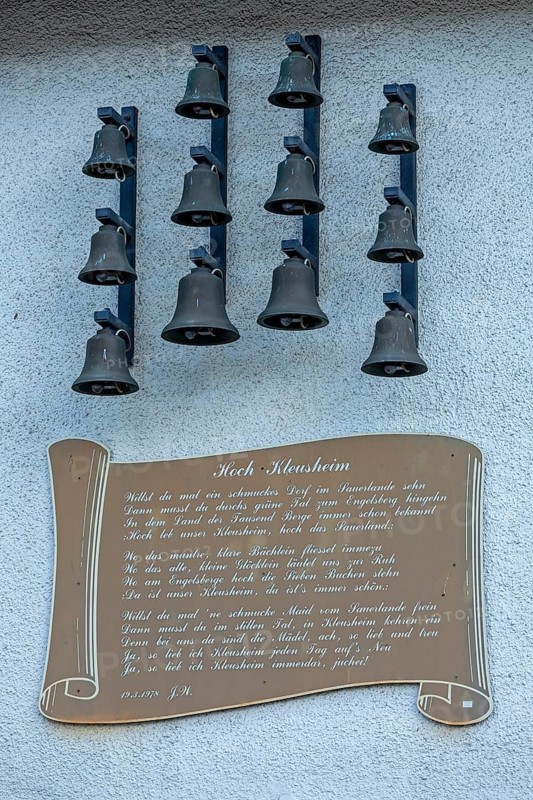 Hoch Kleusheim
Willst du mal ein schmuckes Dorf im Sauerlande sehn
Dann musst du durchs grüne Tal zum Engelsberg hingehn
In dem Land der Tausend Berge immer schon bekannt
:Hoch leb unser Kleusheim, hoch das Sauerland:
Wo das muntre, klare Bächlein fliesset immezu
Wo das alte, kleine Glöcklein läutet uns zur Ruh
Wo am Engelsberge hoch die Sieben Buchen stehn
:Da ist unser Kleusheim, da ist's immer schön.:
Willst du mal 'ne schmucke Maid vom Sauerlande frein
Dann musst du im stillen Tal, in Kleusheim kehren ein
Denn bei uns da sind die Mädel, ach, so lieb und treu
Ja, so lieb ich Kleusheim jeden Tag auf's Neu
Ja, so lieb ich Kleusheim immerdar, juchei!
19.3.1978 J.W.